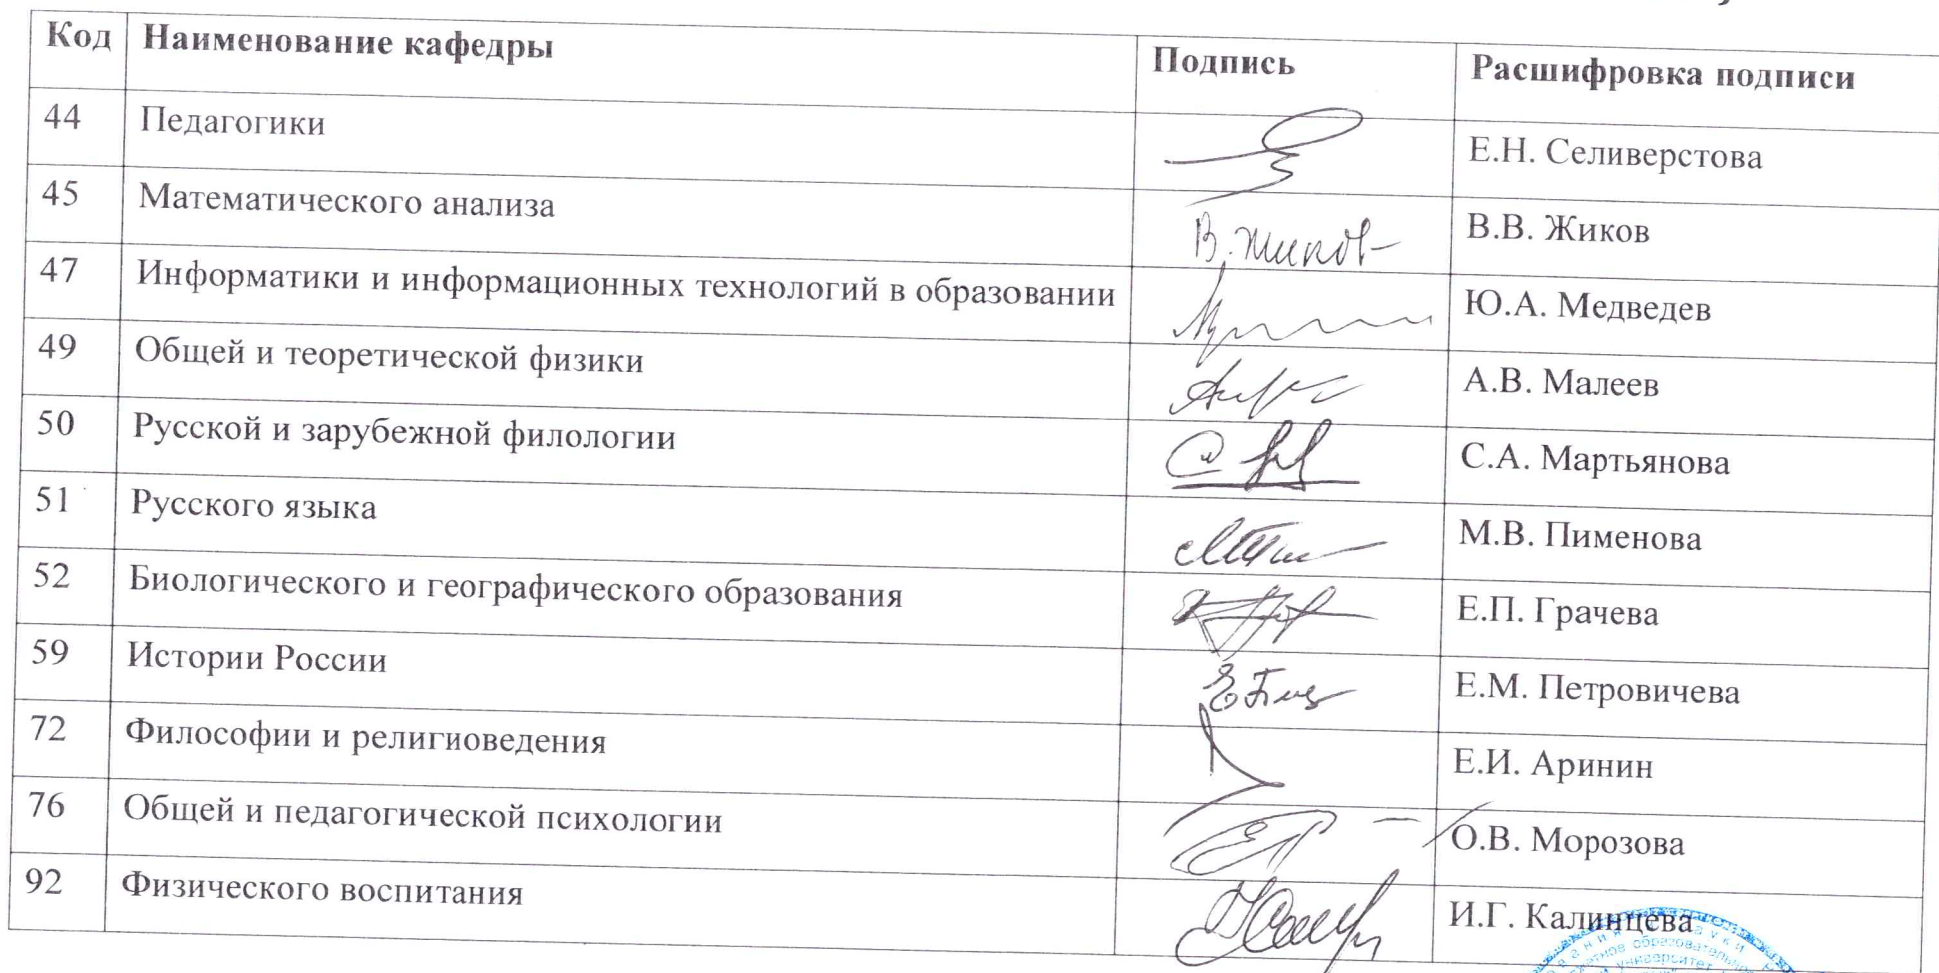 Код Наименование кафедры Подпись Расшифровка подписи
44 Педагогики Е.Н. Селиверстова
45 Математического анализа В. Жиков В.В. Жиков
47 Информатики и информационных технологий в образовании Ю.А. Медведев
49 Общей и теоретической физики А.В. Малеев
50 Русской и зарубежной филологии С.А. Мартьянова
51 Русского языка М.В. Пименова
52 Биологического и географического образования Е.П. Грачева
59 Истории России Е.М. Петровичева
72 Философии и религиоведения Е.И. Аринин
76 Общей и педагогической психологии О.В. Морозова
92 Физического воспитания И.Г. Калинцева